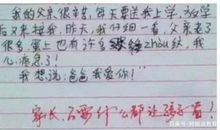 我的父亲很辛苦,每天要送我上学,放学
后又来接我,昨天,我仔细一看,父亲老了
很多,蛋上也有许多zhòu纹,我
心疼急了!
我想说:爸爸我爱你!
家长,不要什么都让孩子看!